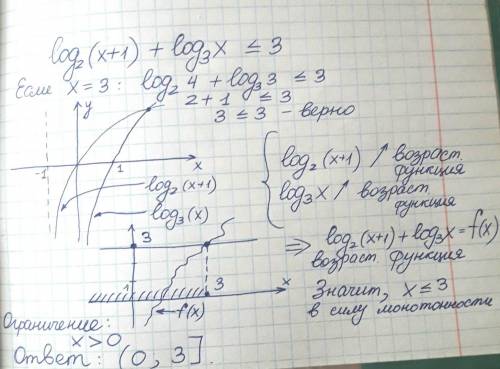 log₂(x+1) + log₃x ≤ 3
Если x = 3 : log₂4 + log₃3 ≤ 3
2 + 1 ≤ 3
3 ≤ 3 – верно
y
-1 1 x
log₂(x+1)
log₃(x)
log₂(x+1) ↗ возраст. функция
log₃x ↗ возраст. функция
3
1
3 x
f(x)
⇒ log₂(x+1) + log₃x = f(x)
возраст. функция
Значит, x ≤ 3
в силу монотонности
Ограничение:
x > 0
Ответ: (0, 3].